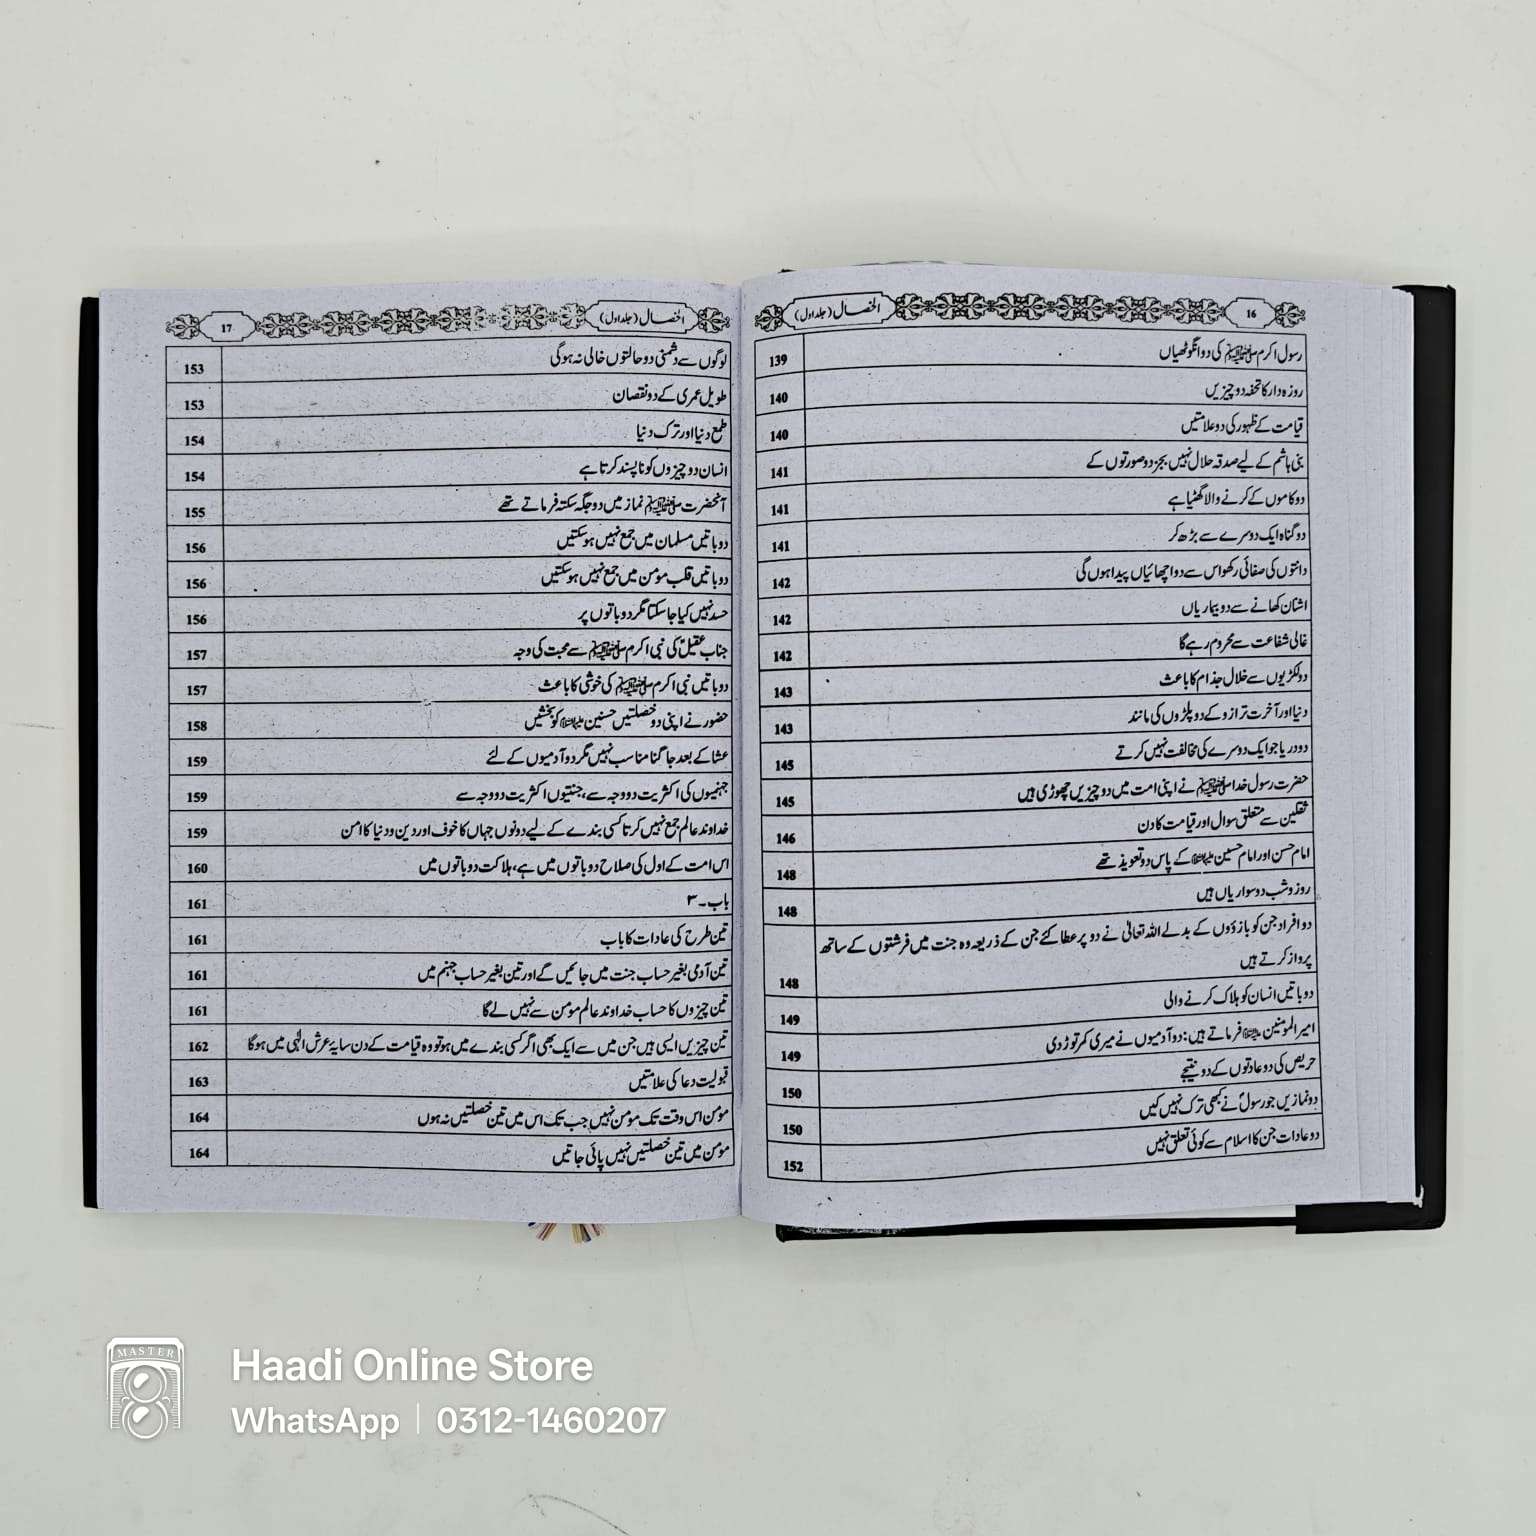 16
الخصال (جلد اول)
رسول اکرم ﷺ کی دو انگوٹھیاں 139
روزہ دار کا تحفہ دو چیزیں 140
قیامت کے ظہور کی دو علامتیں 140
بنی ہاشم کے لیے صدقہ حلال نہیں بجز دو صورتوں کے 141
دو کاموں کے کرنے والا گھٹیا ہے 141
دو گناہ ایک دوسرے سے بڑھ کر 141
دانتوں کی صفائی رکھو اس سے دو اچھائیاں پیدا ہوں گی 142
اشنان کھانے سے دو بیماریاں 142
غالی شفاعت سے محروم رہے گا 142
دو لکڑیوں سے خلال جذام کا باعث 143
دنیا اور آخرت ترازو کے دو پلڑوں کی مانند 143
دو دریا جو ایک دوسرے کی مخالفت نہیں کرتے 145
حضرت رسول خدا ﷺ نے اپنی امت میں دو چیزیں چھوڑی ہیں 145
ثقلین سے متعلق سوال اور قیامت کا دن 146
امام حسن اور امام حسین علیہما السلام کے پاس دو تعویذ تھے 148
روز و شب دو سواریاں ہیں 148
دو افراد جن کو بازوؤں کے بدلے اللہ تعالیٰ نے دو پر عطا کئے جن کے ذریعہ وہ جنت میں فرشتوں کے ساتھ
پرواز کرتے ہیں 148
دو باتیں انسان کو ہلاک کرنے والی 149
امیر المومنین علیہ السلام فرماتے ہیں: دو آدمیوں نے میری کمر توڑ دی 149
حریص کی دو عادتوں کے دو نتیجے 150
دو نمازیں جو رسولؐ نے کبھی ترک نہیں کیں 150
دو عادات جن کا اسلام سے کوئی تعلق نہیں 152
الخصال (جلد اول)
17
لوگوں سے دشمنی دو حالتوں خالی نہ ہوگی 153
طویل عمری کے دو نقصان 153
طمع دنیا اور ترک دنیا 154
انسان دو چیزوں کو ناپسند کرتا ہے 154
آنحضرت ﷺ نماز میں دو جگہ سکتہ فرماتے تھے 155
دو باتیں مسلمان میں جمع نہیں ہو سکتیں 156
دو باتیں قلب مومن میں جمع نہیں ہو سکتیں 156
حسد نہیں کیا جا سکتا مگر دو باتوں پر 156
جناب عقیلؑ کی نبی اکرم ﷺ سے محبت کی وجہ 157
دو باتیں نبی اکرم ﷺ کی خوشی کا باعث 157
حضور نے اپنی دو خصلتیں حسنین علیہما السلام کو بخشیں 158
عشا کے بعد جاگنا مناسب نہیں مگر دو آدمیوں کے لئے 159
جہنمیوں کی اکثریت دو وجہ سے، جنتیوں اکثریت دو وجہ سے 159
خداوند عالم جمع نہیں کرتا کسی بندے کے لیے دونوں جہاں کا خوف اور دین و دنیا کا امن 159
اس امت کے اول کی صلاح دو باتوں میں ہے، ہلاکت دو باتوں میں 160
باب۔ ۳ 161
تین طرح کی عادات کا باب 161
تین آدمی بغیر حساب جنت میں جائیں گے اور تین بغیر حساب جہنم میں 161
تین چیزوں کا حساب خداوند عالم مومن سے نہیں لے گا 161
تین چیزیں ایسی ہیں جن میں سے ایک بھی اگر کسی بندے میں ہو تو وہ قیامت کے دن سایۂ عرش الٰہی میں ہوگا 162
قبولیت دعا کی علامتیں 163
مومن اس وقت تک مومن نہیں جب تک اس میں تین خصلتیں نہ ہوں 164
مومن میں تین خصلتیں نہیں پائی جاتیں 164
MASTER
Haadi Online Store
WhatsApp | 0312-1460207